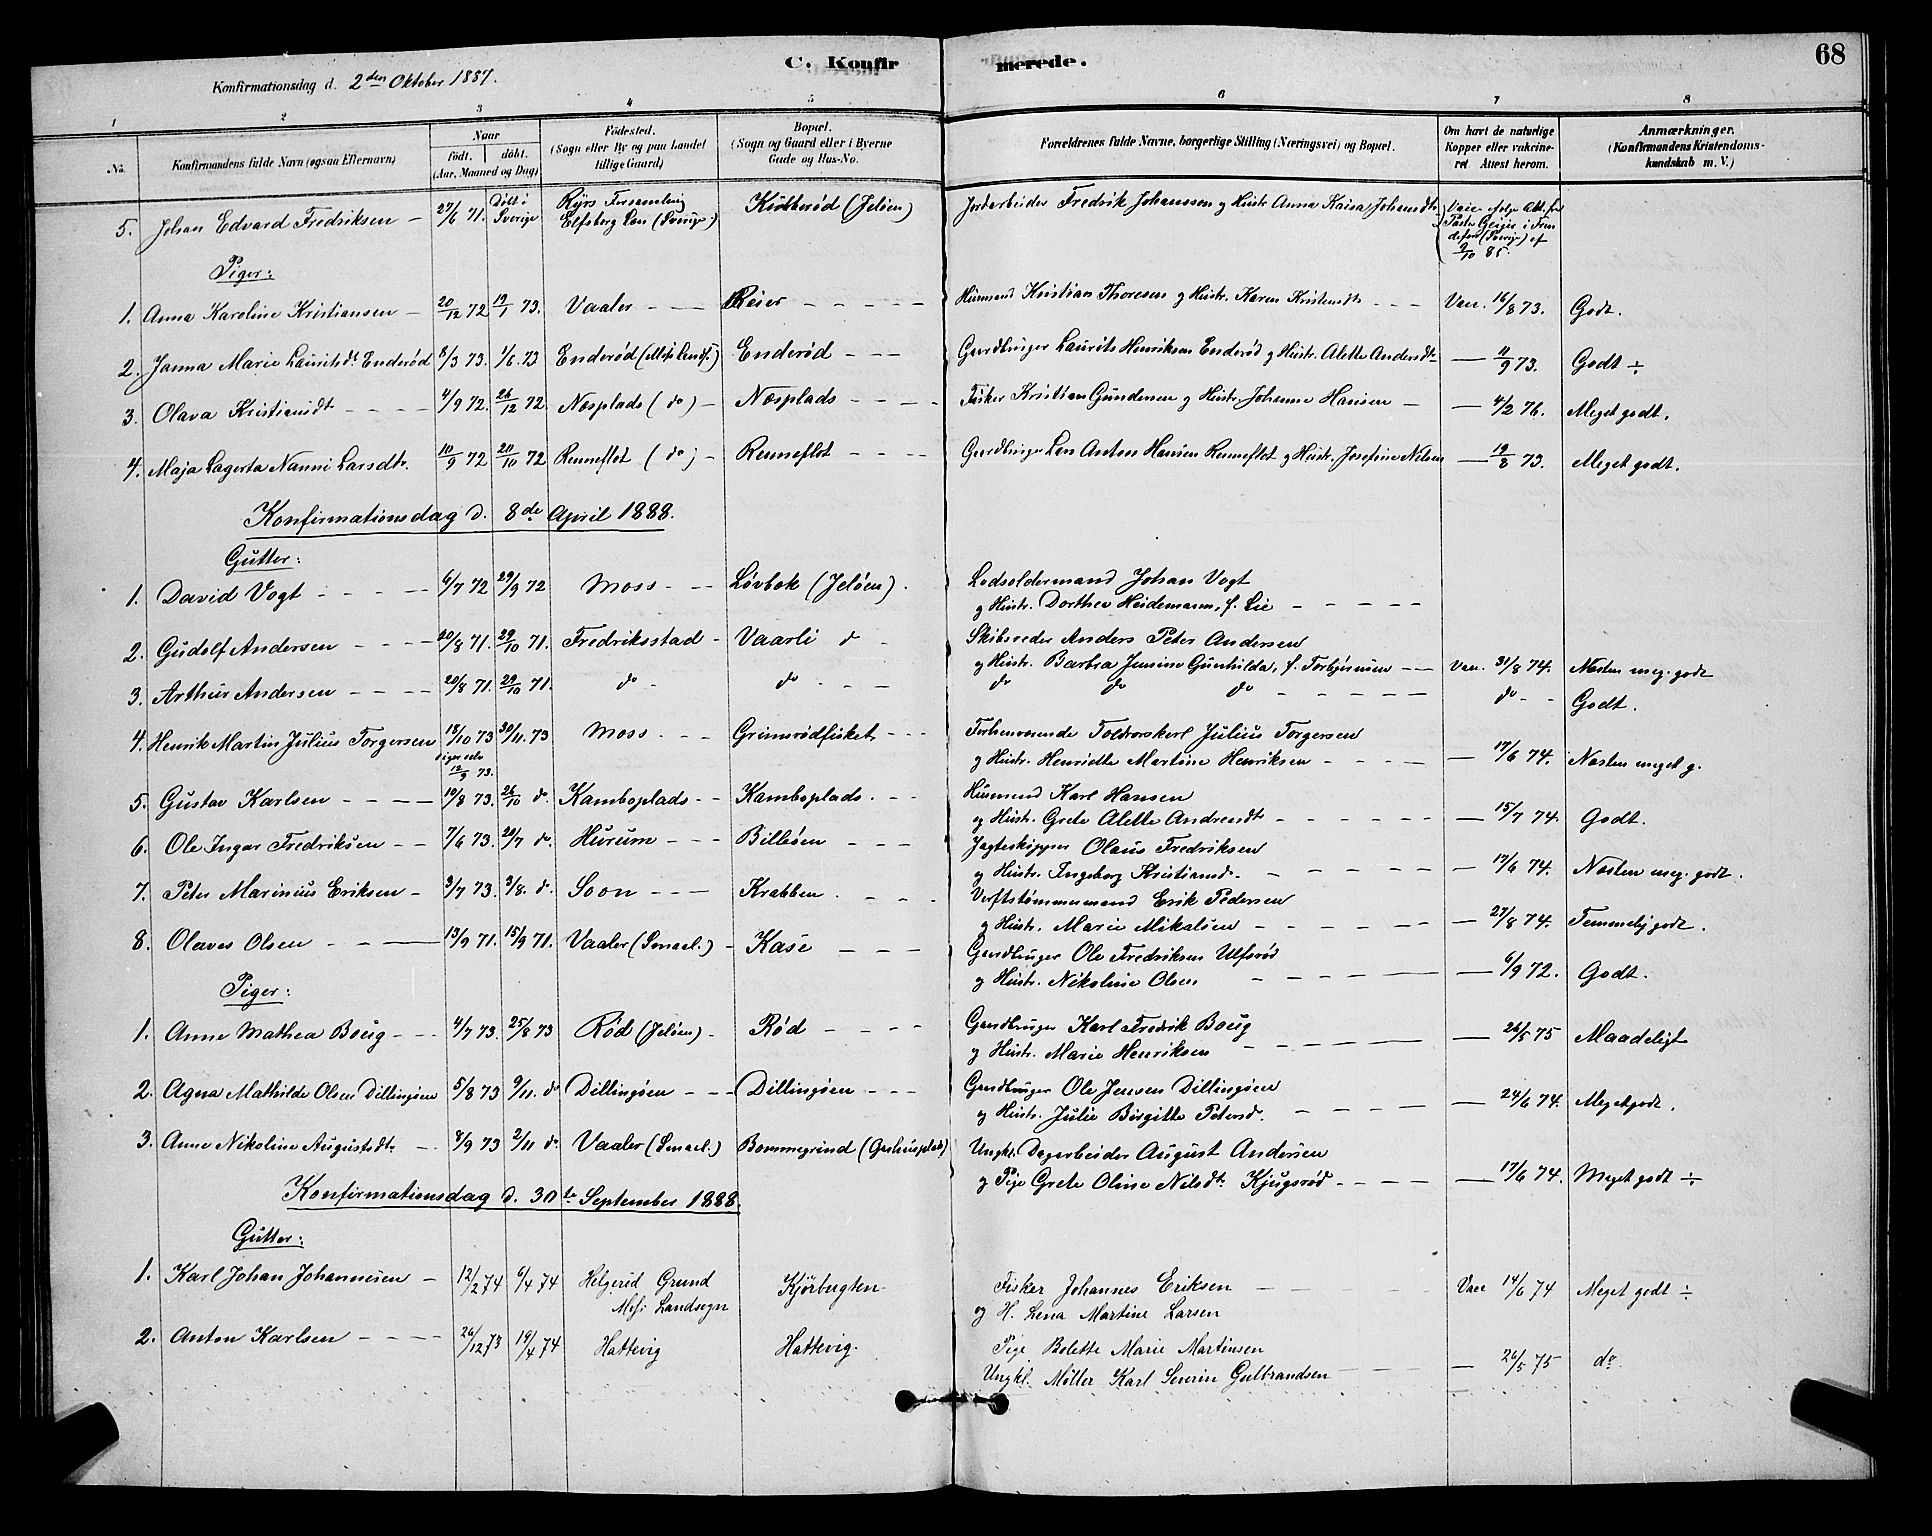 C. Konfirmerede.
68
Konfirmationsdag d. 2den Oktober 1887.
1 2 3 4 5 6 7 8
No. Konfirmandens fulde Navn (ogsaa Efternavn) Naar født, døbt. (Aar, Maaned og Dag) Fødested. (Sogn eller By og paa Landet tillige Gaard) Bopæl. (Sogn og Gaard eller i Byerne Gade og Hus-No. Forældrenes fulde Navne, borgerlige Stilling (Næringsvei) og Bopæl. Om havt de naturlige Kopper eller vakcineret Attest herom. Anmærkninger. (Konfirmandens Kristendomskundskab m. V.)
5. Johan Edvard Fredriksen – 27/6 71. Døbt i Sverige Ryrs Forsamling Elfsborg Len (Sverige) (Jeløen) Jordarbeider Fredrik Johanssen og Hustr. Anna Kaisa Johansdt. Vacc. ifølge Att. fra Pastor i (Sverige) af 9/10 85.
Piger:
1. Anna Karoline Kristiansen – 20/12 72 19/1 73. Vaaler – – Reier – – – – – Husmand Kristian Thoresen og Hustr. Karen Kristensdt. – – – Vacc. 16/8 73. Godt.
2. Janna Marie Lauritsdt. Enderød 8/3 73. 1/6. 73 Enderød (Moss Lands.) Enderød – – – Gaardbruger Laurits Henriksen Enderød og Hustr. Alette Andersdt. – 11/9 73. Godt ÷
3. Olava Kristiansdt. – – – – 4/9 72. 26/12 72. Næsplads (do) – Næsplads – – – – Fisker Kristian Gundersen og Hustr. Johanne Hansen – – 4/2 76. Meget godt.
4. Maja Lagerta Nanni Larsdtr. 10/9 72 20/10 72 Renneflot (do) – Renneflot – – – – Gaardbruger Lars Anton Hansen Renneflot og Hustr. Josefine Nilsen – 19/8 73. Meget godt.
Konfirmationsdag d. 8de April 1888.
Gutter:
1. David Vogt – – – – 6/7 72 29/9 72 Moss – – Løvbok (Jeløen). Lodsoldermand Johan Vogt
og Hustr. Dorthea Heidemann, f. Lie – – – – –
2. Gudolf Andersen – – – – 20/8 71. 29/10 71. Fredriksstad – Vaarli do – Skibsreder Anders Peter Andersen
og Hustr. Barbra Jensine Gunhilda, f. Torbjørnsen – – Vac. 31/8 74. Næsten meg. godt
3. Arthur Andersen – – – – 20/8 71. 29/10 71. do – do – – – do do do – – – – – – do – – Godt.
4. Henrik Martin Julius Torgersen 18/10 73 30/11. 73 Moss – – – Grimsrødfisket – – – Forhenværende Toldrorskarl Julius Torgersen
siger selv 12/9 73. og Hustr. Henriette Martine Henriksen – – – – – – 17/6 74. Næsten meget g.
5. Gustav Karlsen – – – – 10/8 73. 26/10 do. Kamboplads – – Kamboplads. – – Husmand Karl Hansen
og Hustr. Grete Alette Andreasdt. – – – – – – – 15/7 74. Godt.
6. Ole Ingar Fredriksen – – 7/6 73. 20/7 do. Hurum – – – Billeøen – – – Jagteskipper Olaus Fredriksen
og Hustr. Ingeborg Kristiansd. – – – – – – – 17/6 74. Næsten meg. godt.
7. Peter Marinius Eriksen – 3/7 73. 3/8. do. Soon – – – Krabben. – – – Verftstømmermand Erik Pedersen
og Hustr. Marie Mikalsen – – – – – – 27/8 74. Temmelig godt.
8. Olaves Olsen – – – 13/9 71. 15/9 71. Vaaler (Smaal.) – Kase – – – Gaardbruger Ole Fredriksen Ulfsrød
og Hustr. Nikoline Olsen – – – – – – 6/9 72. Godt.
Piger:
1. Anne Mathea Boug – – – 4/7 73. 25/8 73 Rød (Jeløen) – Rød – – – – Gaardbruger Karl Fredrik Boug
og Hustr. Marie Henriksen – – – – – – 26/5 75 Maadeligt
2. Agna Mathilde Olsen Dillingøen 5/8 73 9/11. do Dillingøen – – – Dillingøen – – – Gaardbruger Ole Jensen Dillingøen
og Hustr. Julie Birgitte Petersd. – – – – – 24/6 74. Meget godt.
3. Anne Nikoline Augustsdt. – – 8/9 73 2/11 do Vaaler (Smaal.) Bommegrind Ungkl. Dagarbeider August Andersen
og Pige Grete Oline Nilsdt. Kjugsrød – – – – – 17/6 74. Meget godt ÷
Konfirmationsdag d. 30te September 1888.
Gutter:
1. Karl Johan Johannesen – 12/2 74 6/4 74 Helgerød Grund Kjörbugten Fisker Johannes Eriksen – – – – – Vacc 14/6 74 Meget godt ÷
Moss Landsogn og H. Lena Martine Larsen
2. Anton Karlsen – – – – 26/12 73 19/4 74 Hattevig Hattevig. Pige Bolette Marie Martinsen
Ungkl. Møller Karl Severin Gulbrandsen – – – – 26/5 75 do.